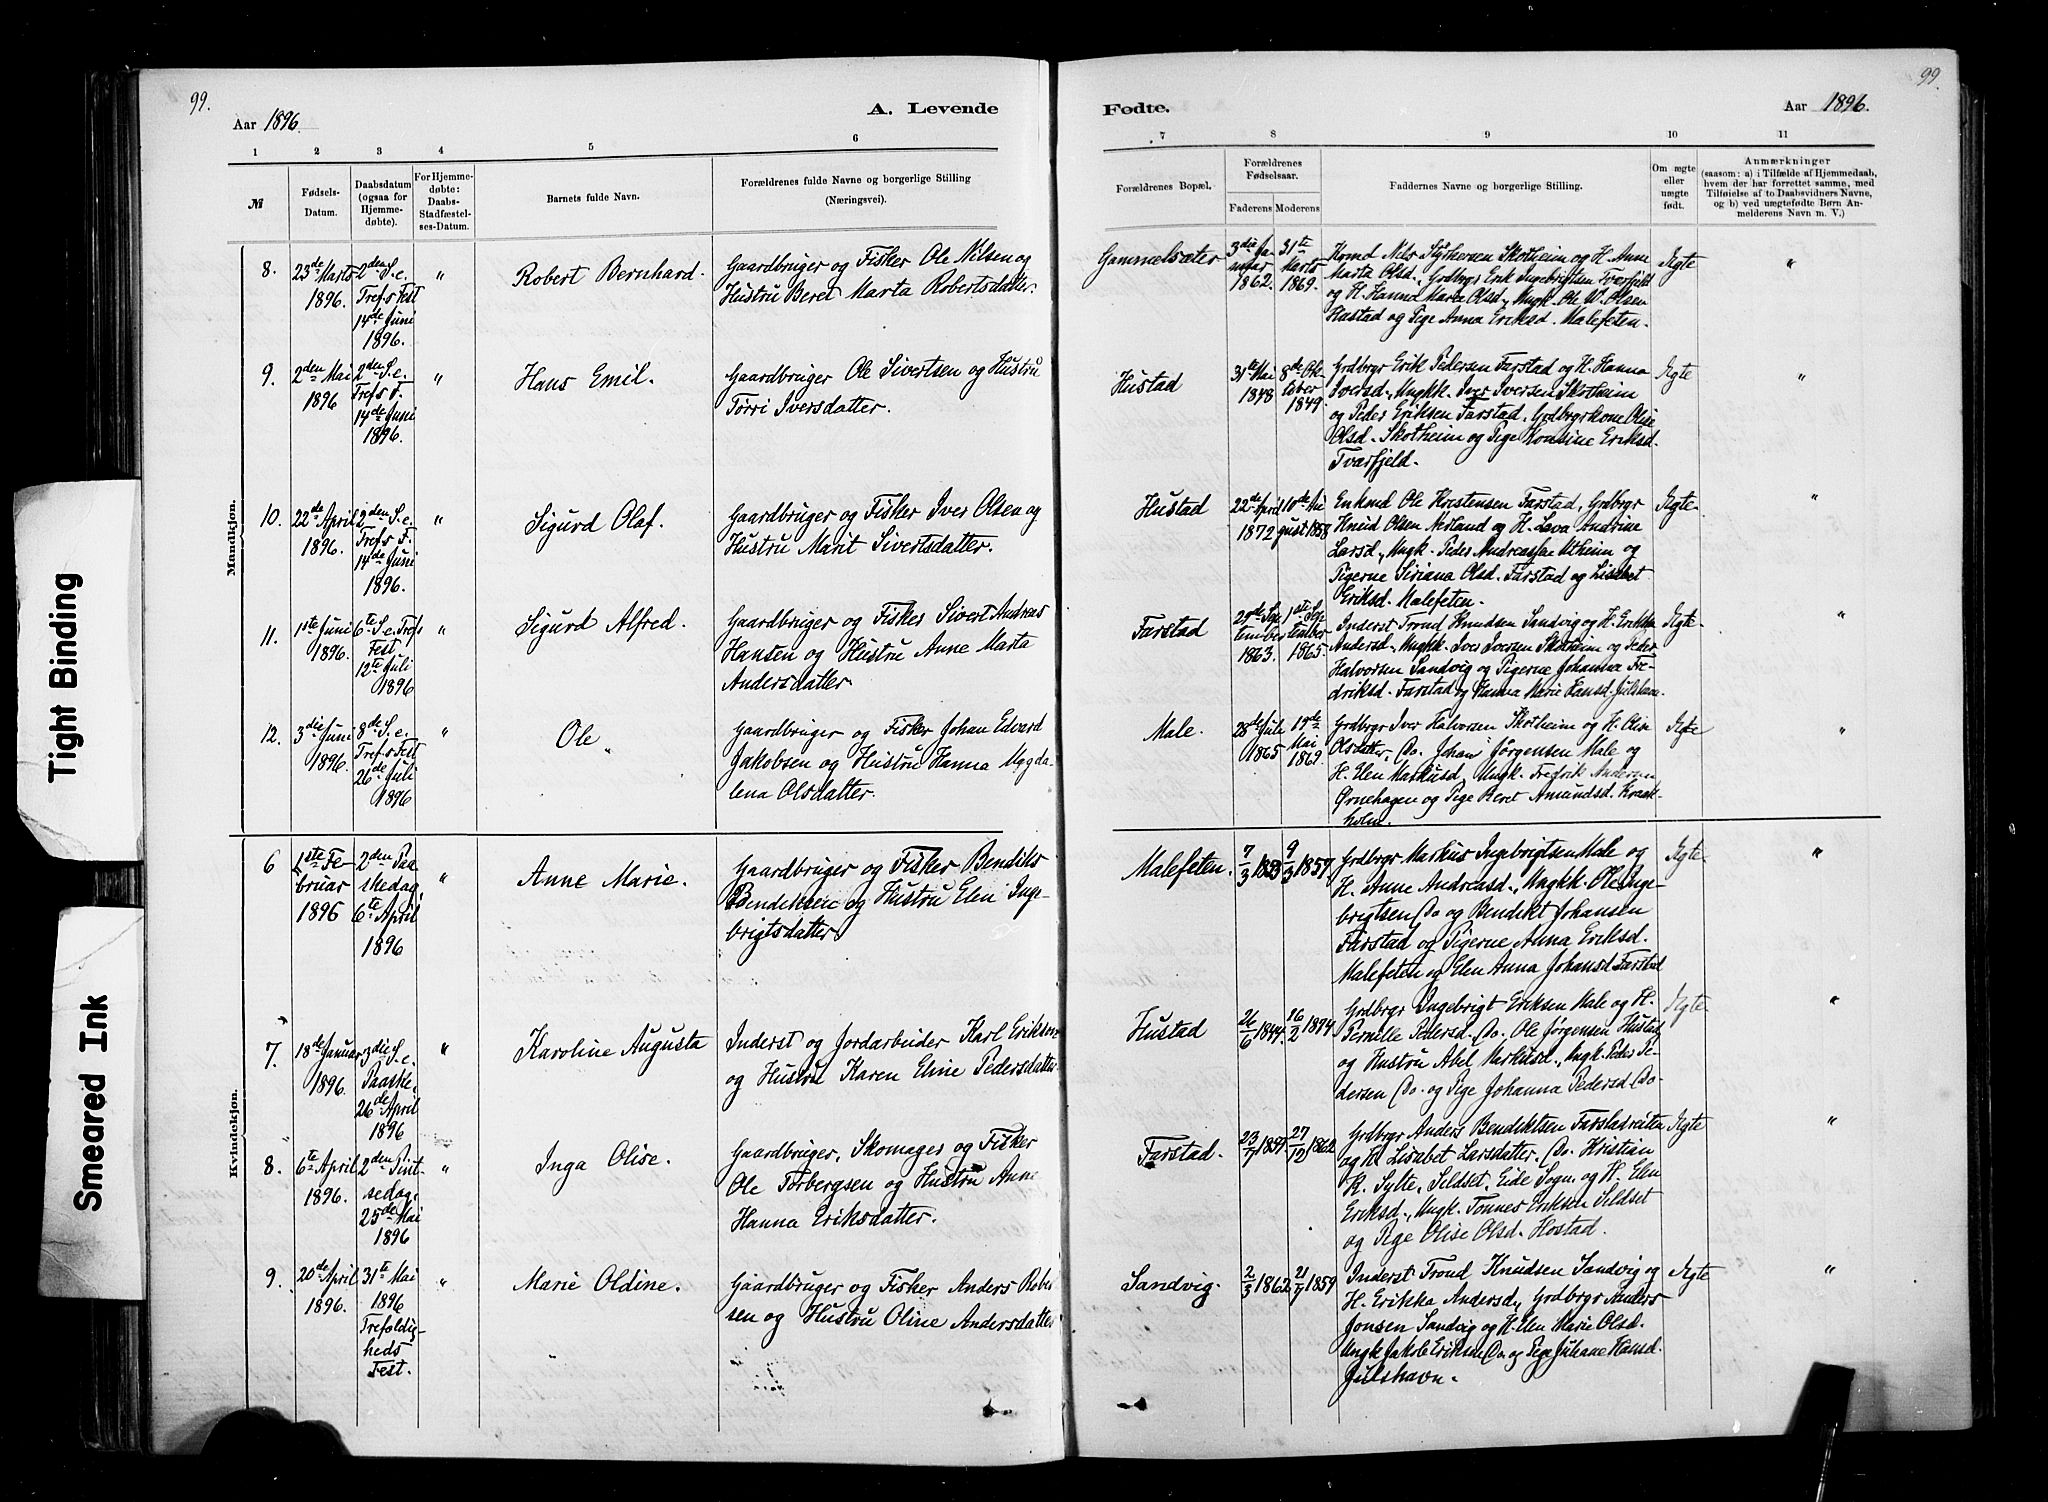 99.
Aar 1896.
A. Levende
Fødte.
Aar 1896.
99
1 2 3 4 5 6 7 8 9 10 11
№
Fødsels-
Datum.
Daabsdatum
(ogsaa for
Hjemme-
døbte).
For Hjemme-
døbte:
Daabs-
Stadfæstel-
ses-Datum.
Barnets fulde Navn.
Forældrenes fulde Navne og borgerlige Stilling
(Næringsvei).
Forældrenes Bopæl.
Forældrenes
Fødselsaar.
Faderens Moderens
Faddernes Navne og borgerlige Stilling.
Om ægte
eller
uægte
født.
Anmærkninger
(saasom: a) i Tilfælde af Hjemmedaab,
hvem der har forrettet samme, med
Tilføielse af to Daabsvidners Navne,
og b) ved uægtefødte Børn An-
melderens Navn m. V.)
Mandkjøn.
8.
23de Marts
1896.
2den S. e.
Tref.s Fest
14de Juni
1896.
"
Robert Bernhard.
Gaardbruger og Fisker Ole Nilsen og
Hustru Beret Marta Robertsdatter.
Gammelsæter
3die Ja-
nuar
1862.
31te
Marts
1869.
Marta Olsd., Grdbrgr Erik Ingebrigtsen Tværfjeld
og H. Hanna Maria Olsd., Ungk. Ole W. Olsen
Rastad og Pige Anna Eriksd. Malefeten.
Ægte
"
9.
2den Mai
1896
2den S. e.
Tref.s F.
14de Juni
1896.
"
Hans Emil.
Gaardbruger Ole Sivertsen og Hustru
Tørri Iversdatter.
Hustad
31te Mai
1848
8de Ok-
tober
1849.
Grdbrgr Erik Pedersen Farstad og H. Hanna
Iversd., Ungkk. Iver Iversen Skotheim
og Peder Eriksen Farstad. Grdbrgrkone Olise
Olsd. Skotheim og Pige Eriksd.
Tværfjeld.
Ægte
"
10.
22de April
1896.
2den S. e.
Tref.s F.
14de Juni
1896.
"
Sigurd Olaf.
Gaardbruger og Fisker Iver Olsen og
Hustru Marit Sivertsdatter.
Hustad
22de April
1872
10de Au-
gust 1868
Enkmd Ole Kristensen Farstad, Grdbrgr
Knud Olsen Nerland og H. Lava Andrine
Larsd., Ungk. Peder Utheim og
Pigerne Siriana Olsd. Farstad og Lisabet
Eriksd. Malefeten.
Ægte
"
11.
1ste Juni
1896.
6te S. e. Tref.s
Fest
12te Juli
1896
"
Sigurd Alfred.
Gaardbruger og Fisker Sivert Andreas
Hansen og Hustru Anne Marta
Andersdatter.
Farstad
29de Sep-
tember
1863.
1ste Sep-
tember
1865.
Inderst Trond Knudsen Sandvig og H. Erikka
Andersd., Ungkk. Iver Iversen Skotheim og Peder
Halvorsen Sandvig og Pigerne Johanna Fre-
driksd. Farstad og Hanna Marie Hansd. Julshavn.
Ægte
"
12.
3die Juni
1896.
8de S. e.
Tref.s Fest
26de Juli
1896
"
Ole
Gaardbruger og Fisker Johan Edvard
Jakobsen og Hustru Hanna Magda-
lena Olsdatter.
Male.
28de Juli
1865
19de
Mai
1869.
Grdbrgr Iver Halvorsen Skotheim og H. Olise
Olsdatter, Do. Johan Jørgensen Male og
H. Elen Markusd., Ungk. Fredrik Andersen
Ørnehagen og Pige Beret Amundsd. Kraak-
holm.
Ægte
"
Kvindekjøn.
6
1ste Fe-
bruar
1896
2den Paa-
skedag
6te April
1896
"
Anne Marie.
Gaardbruger og Fisker Bendik
Bendiksen og Hustru Elen Inge-
brigtsdatter.
Malefeten.
7/3
9/3 1857.
Grdbrgr Markus Ingebrigtsen Male og
H. Anne Andreasd., Ungkk. Ole Inge-
brigtsen Do og Bendikt Johansen
Farstad og Pigerne Anna Eriksd.
Malefeten og Elen Anna Johansd. Farstad
Ægte
"
7.
18de Januar
1896.
3die S. e.
Paaske.
26de April
1896
"
Karoline Augusta
Inderst og Jordarbeider Karl Eriksen
og Hustru Karen Eline Pedersdatter
Hustad
26/6 1844.
16/2 1874
Grdbrgr Ingebrigt Eriksen Male og H.
Pernille Pedersd., Do. Ole Jørgensen Hustad
og Hustru Abel Markusd., Ungk. Peder Pe-
dersen Do. og Pige Johanna Pedersd Do.
Ægte
"
8.
6te April
1896.
2den Pint-
sedag.
25de Mai
1896
"
Inga Olise.
Gaardbruger, Skomager og Fisker
Ole Torbergsen og Hustru Anne
Hanna Eriksdatter.
Farstad.
23/7 1857
27/12 1862
Grdbrgr Anders Bendiktsen Farstadreiten
og H. Lisabet Larsdatter, Do. Kristian
R. Sylte, Seldset, Eide Sogn. og H. Elen
Eriksd., Ungk. Tønnes Eriksen Seldset
og Pige Olise Olsd. Hostad.
Ægte
"
9.
20de April
1896.
31te Mai
1896
Trefoldig-
heds
Fest.
"
Marie Oldine.
Gaardbruger og Fisker Anders Rober-
sen og Hustru Oline Andersdatter
Sandvig.
2/3 1862
21/7 1859
Inderst Trond Knudsen Sandvig og
H. Erikka Andersd., Grdbrgr Anders
Jonsen Sandvig og H. Elen Marie Olsd.
Ungk Jakob Eriksen Do. og Pige Juhane Hansd.
Julshavn.
Ægte
"
Tight Binding
Smeared Ink